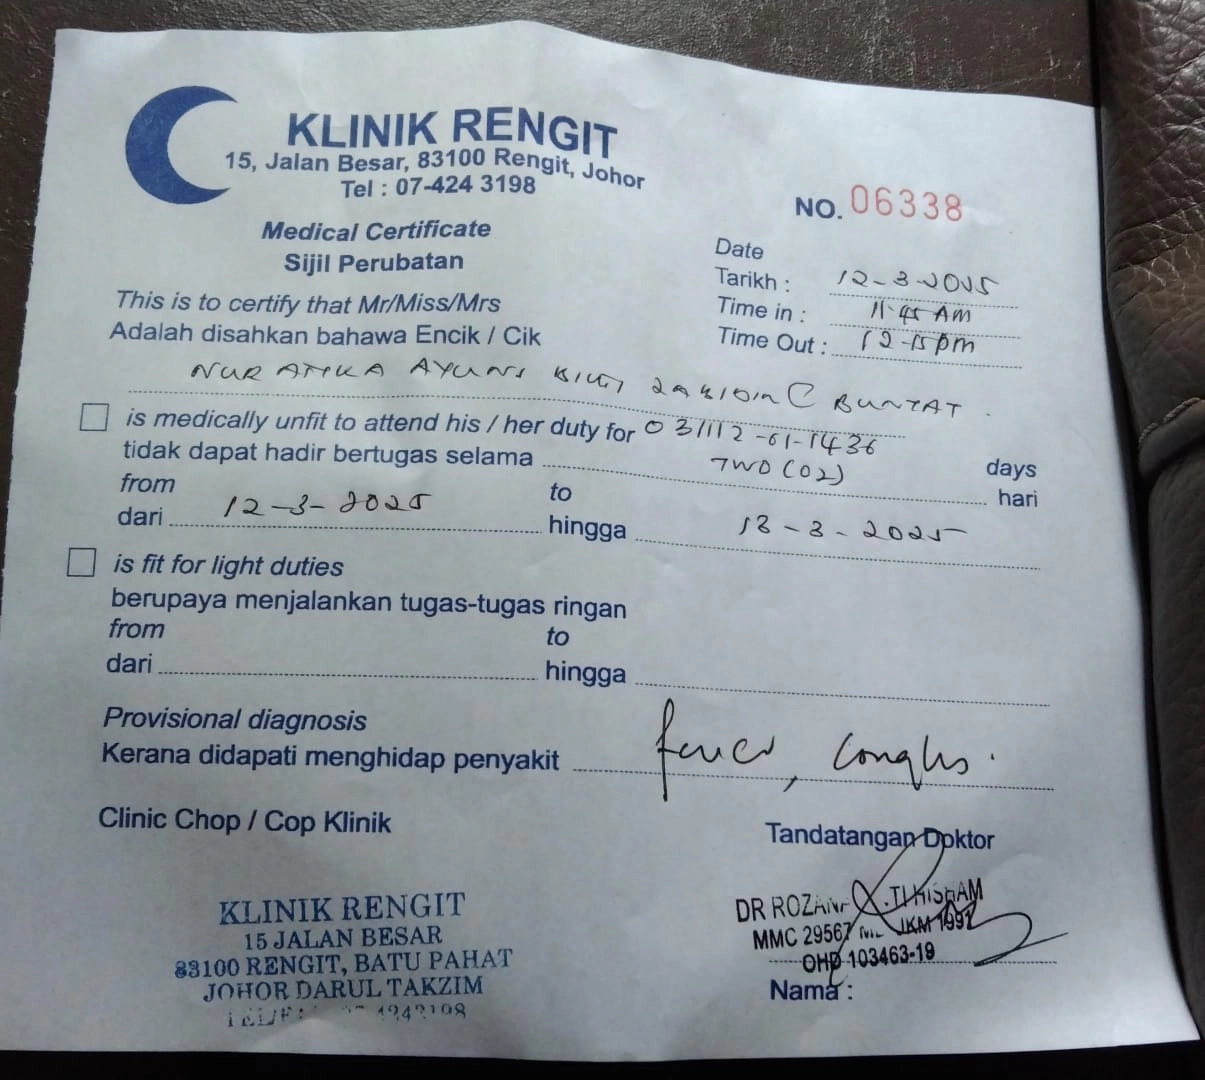 KLINIK RENGIT
15, Jalan Besar, 83100 Rengit, Johor
Tel : 07-424 3198
NO. 06338
Medical Certificate
Sijil Perubatan
Date
Tarikh : 12-3-2025
Time in : 11.45 AM
Time Out : 12-15pm
This is to certify that Mr/Miss/Mrs
Adalah disahkan bahawa Encik / Cik
NUR ATIKA AYUNI BINTI @ BUNTAT.
is medically unfit to attend his / her duty for 031112-01-1436 days
tidak dapat hadir bertugas selama TWO (02) hari
from to
dari 12-3-2025 hingga 13-3-2025
is fit for light duties
berupaya menjalankan tugas-tugas ringan
from to
dari hingga
Provisional diagnosis
Kerana didapati menghidap penyakit fever, coughs.
Clinic Chop / Cop Klinik
Tandatangan Doktor
KLINIK RENGIT
15 JALAN BESAR
83100 RENGIT, BATU PAHAT
JOHOR DARUL TAKZIM
4243198
DR HISHAM
MMC 29567 UKM 1991
OHD 103463-19
Nama :